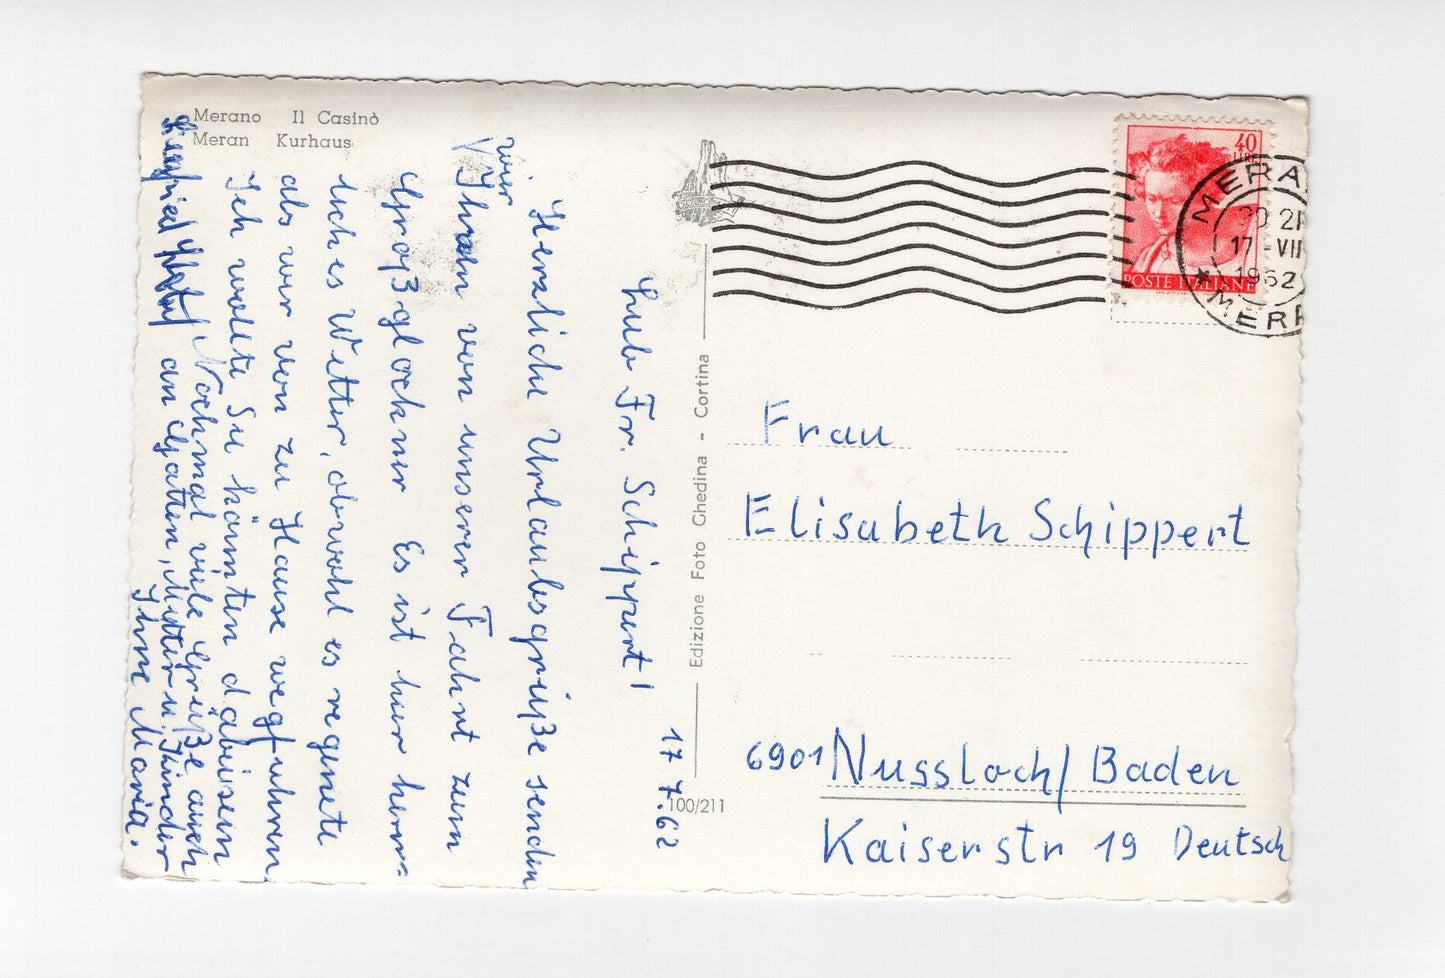 Merano Il Casinò
Meran Kurhaus
17 7.62
Liebe Fr. Schippert!
Herzliche Urlaubsgrüße senden
wir
Ihnen von unserer Fahrt zum
Großglockner Es ist hier herr-
liches Wetter, obwohl es regnete
als wir von zu Hause wegfuhren.
Ich wollte Sie könnten dabeisein
Nochmal viele Grüße auch
an Gatten, Mutter u. Kinder
Ihre Maria.
Edizione Foto Ghedina - Cortina
100/211
40
LIRE
POSTE ITALIANE
MERA
20 21
17 -VII
1962
* MERA
Frau
Elisabeth Schippert
6901 Nussloch/ Baden
Kaiserstr 19 Deutsch